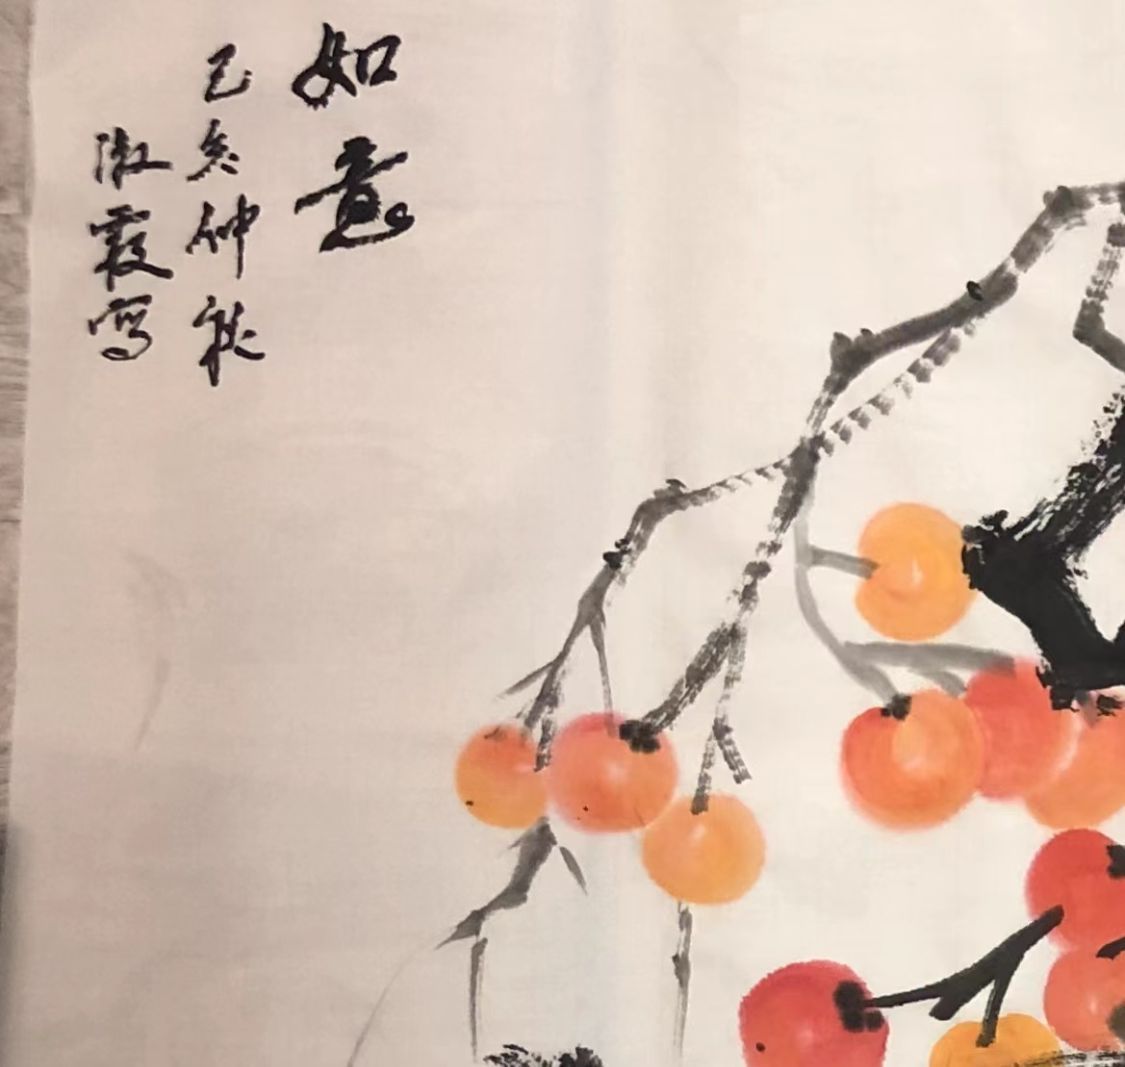 如意
己亥仲秋
淑霞写